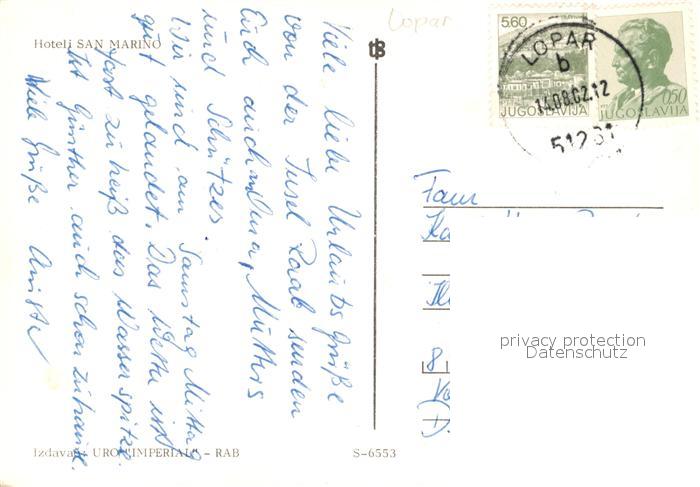 Hoteli SAN MARINO
Lopar
5.60
JUGOSLAVIJA
0.50
JUGOSLAVIJA
LOPAR
b
14.08.82.12
51281
Viele liebe Urlaubsgrüße
von der Insel Raab senden
Euch auch Mutters
und Schützes.
Wir sind am Samstag Mittag
gut gelandet. Das Wetter ist
fast zu heiß das Wasser spitze.
Ist Günther auch schon zuhause.
Viele Grüße
Fam
8
privacy protection
Datenschutz
Izdavač: URO "IMPERIAL" - RAB
S-6553